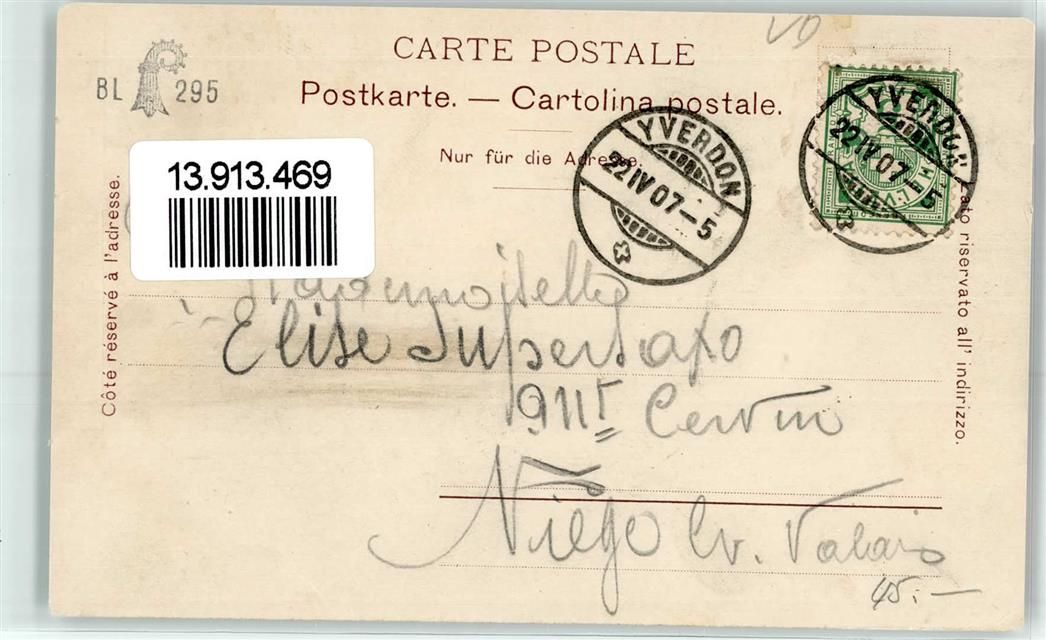 VD
CARTE POSTALE
BL 295
Postkarte. — Cartolina postale.
Nur für die Adresse.
YVERDON
22 IV 07–5
YVERDON
22 IV 07–5
HELVETIA
13.913.469
Côté réservé à l'adresse.
Lato riservato all' indirizzo.
Mademoiselle
Elise Supersaxo
Mt Cervin
Viège Cv. Valais
45.—